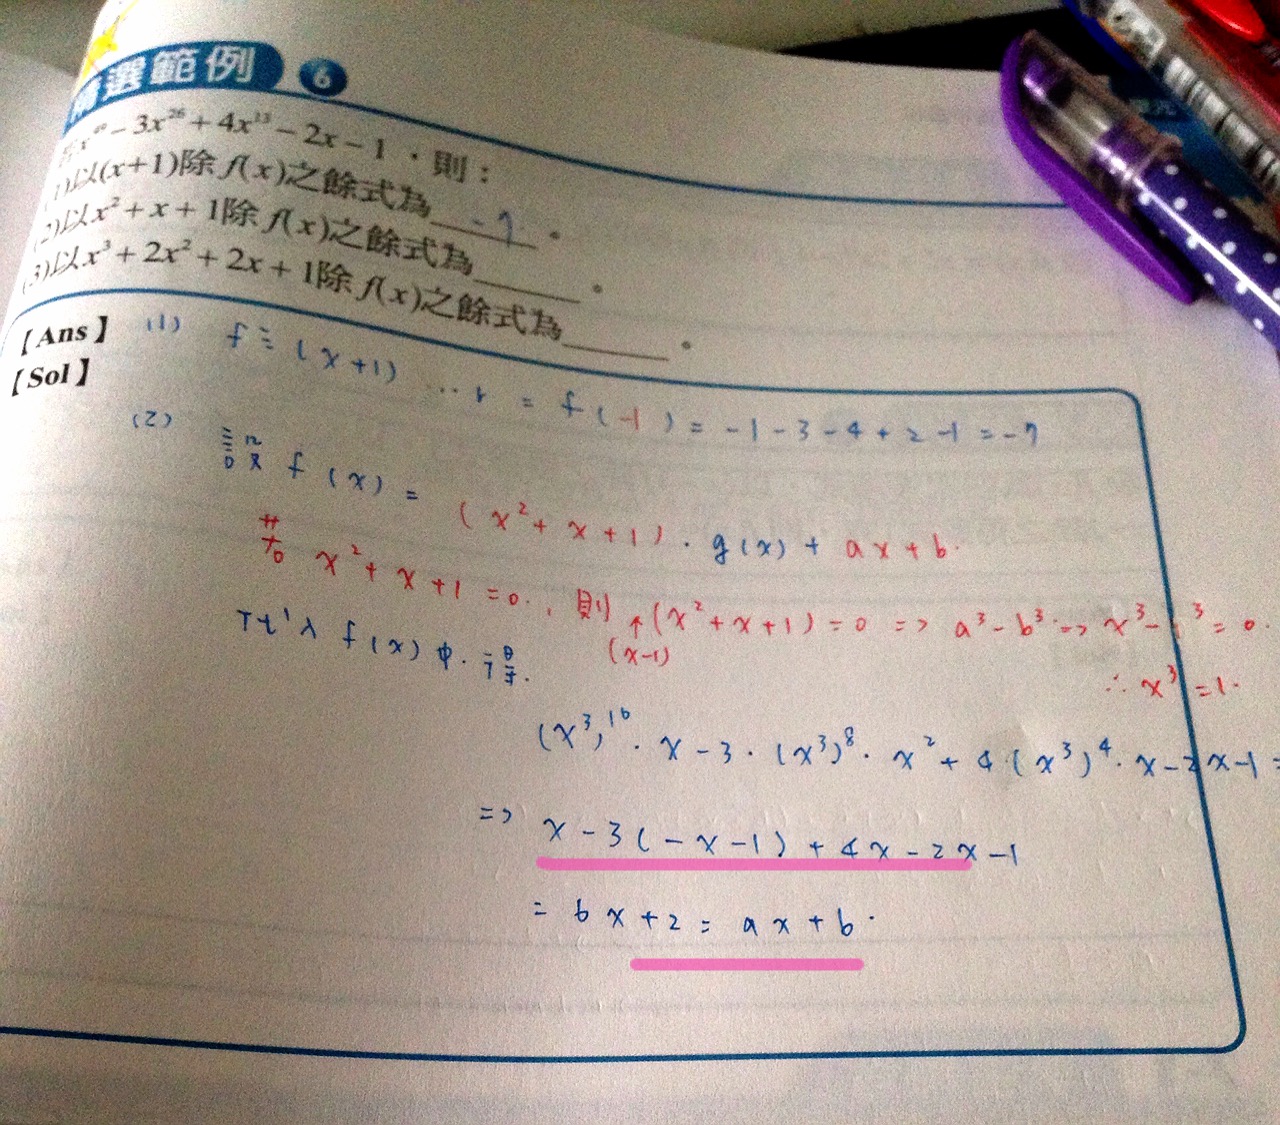 精選範例 6
若x⁴⁹－3x²⁶＋4x¹³－2x－1，則：
(1)以(x＋1)除f(x)之餘式為 -7 。
(2)以x²＋x＋1除f(x)之餘式為______。
(3)以x³＋2x²＋2x＋1除f(x)之餘式為______。
【Ans】
【Sol】
(1) f ÷ (x+1) ... r = f(-1) = -1-3-4+2-1 = -7
(2) 設 f(x) = (x²+x+1)·g(x)+ax+b.
若 x²+x+1=0., 則 (x²+x+1)=0 => a³-b³ => x³-1³=0.
(x-1)
∴ x³=1.
代入 f(x) 中. 得.
(x³)¹⁶·x-3·(x³)⁸·x²+4·(x³)⁴·x-2x-1=
=> x-3(-x-1)+4x-2x-1
= 6x+2 = ax+b.